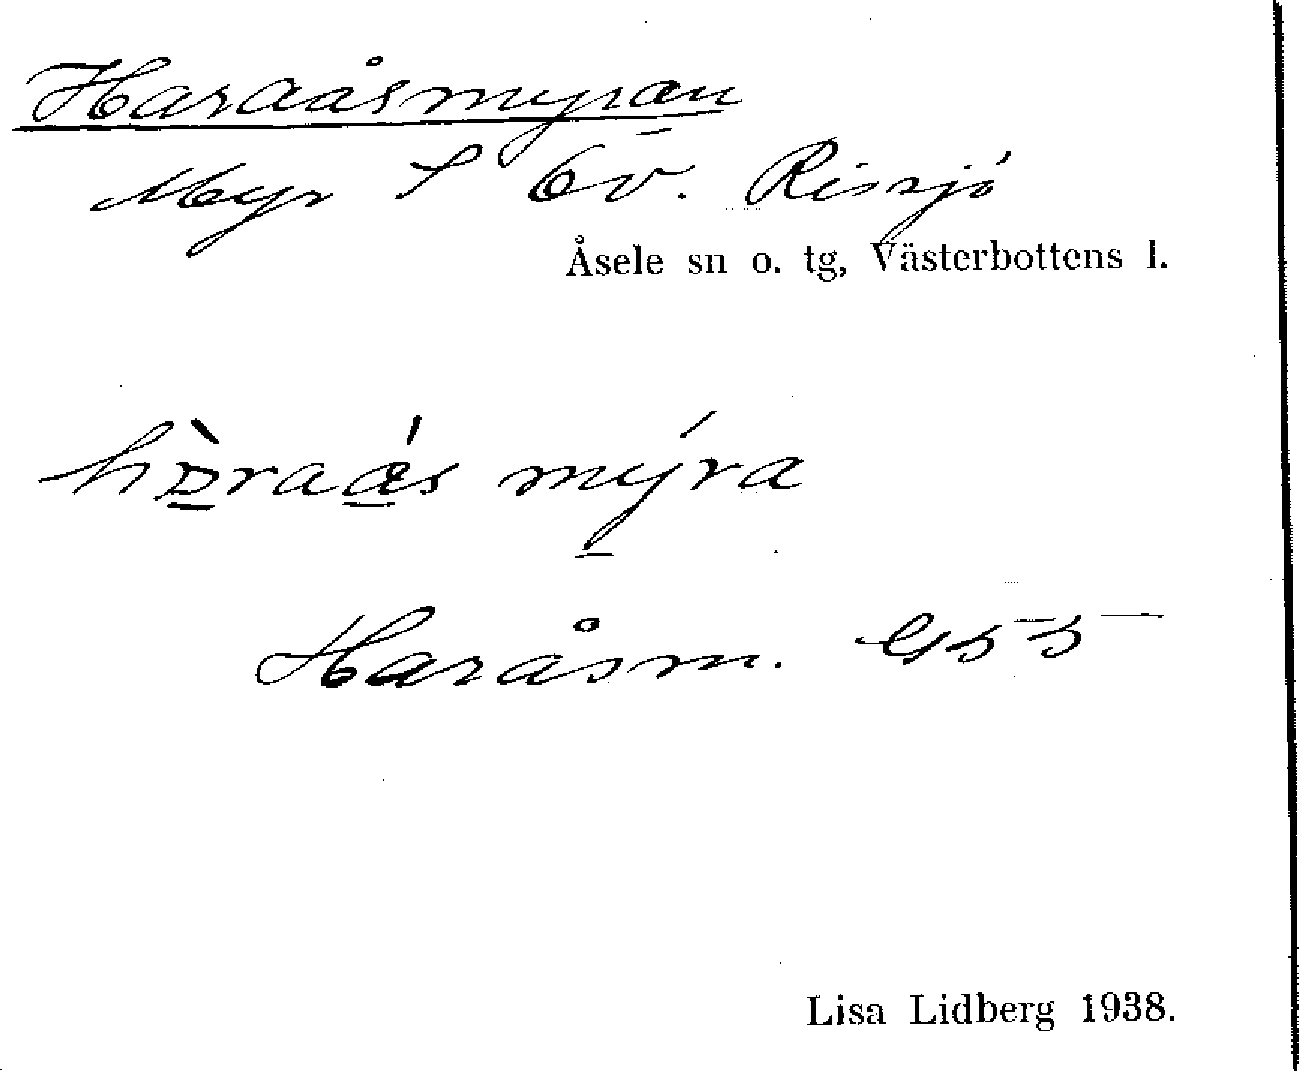 Haraåsmyran
Myr S Öv. Rissjö
Åsele sn o. tg, Västerbottens l.
hàraás mýra
Haråsm. G55
Lisa Lidberg 1938.